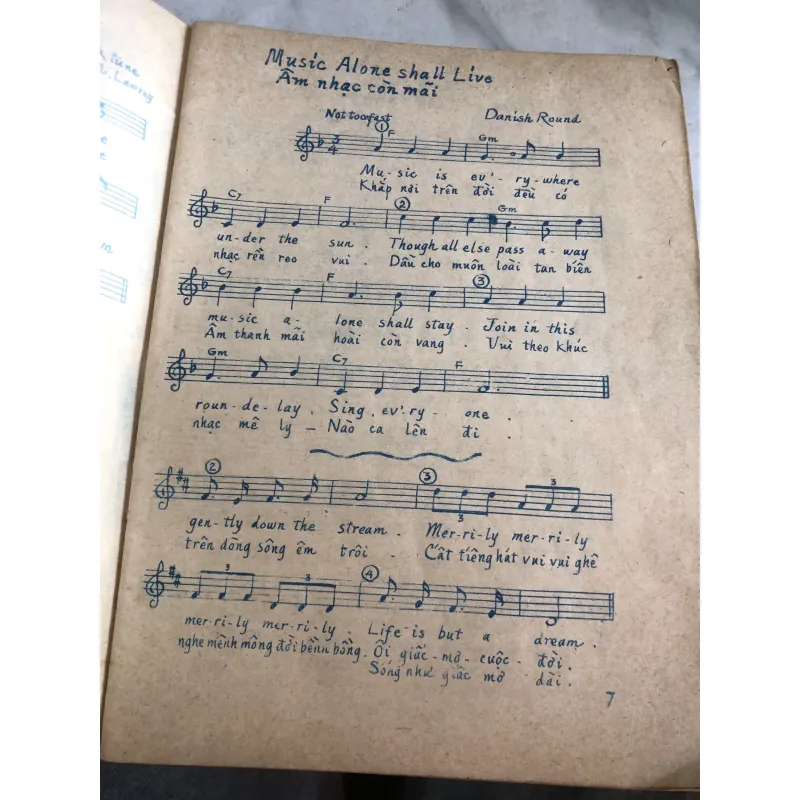 k tune
L. Lowry
e
e
m
Music Alone shall Live
Âm nhạc còn mãi
Not too fast
Danish Round
1 F Gm
3 4
Mu-sic is ev'-ry-where
Khắp nơi trên đời đều có
C7 F 2 Gm
un-der the sun. Though all else pass a-way
nhạc rền reo vui. Dầu cho muôn loài tan biến
C7 F 3
mu-sic a-lone shall stay. Join in this
Âm thanh mãi hoài còn vang. Vui theo khúc
Gm C7 F
roun-de-lay. Sing, ev'ry-one.
nhạc mê ly – Nào ca lên đi.
2 3 3 3
gen-tly down the stream. Mer-ri-ly mer-ri-ly
trên dòng sông êm trôi. Cất tiếng hát vui vui ghê
3 3 4
mer-ri-ly mer-ri-ly. Life is but a dream.
nghe mềnh mông đời bềnh bồng. Ôi giấc-mơ-cuộc-đời.
Sống như giấc mơ dài.
7